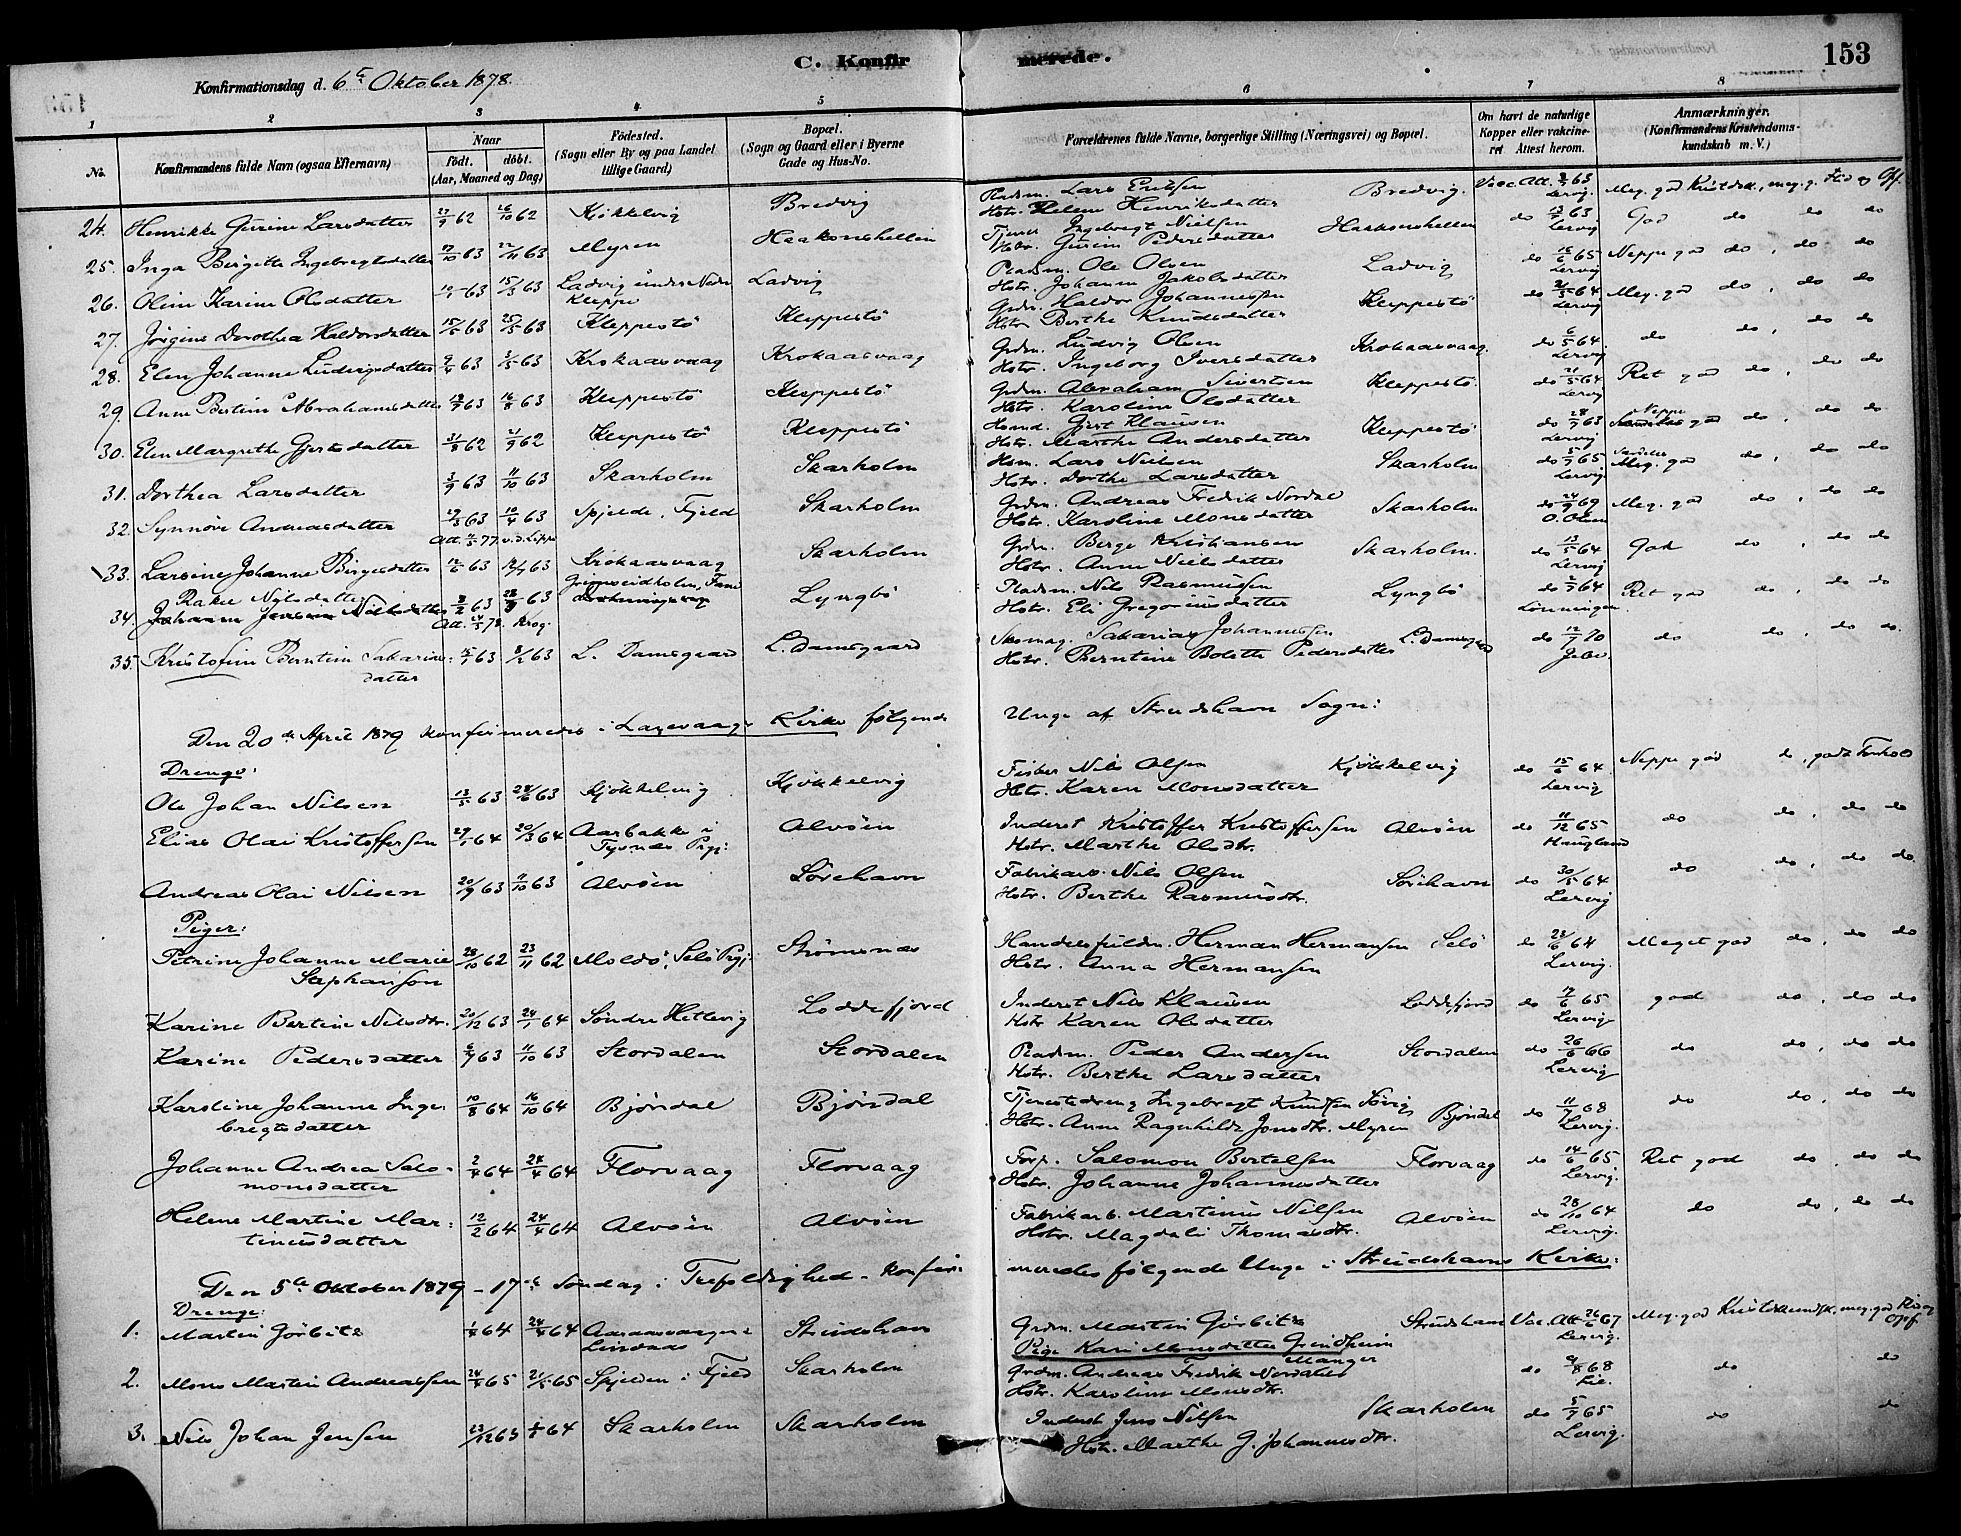 C. Konfirmerede.
153
Konfirmationsdag d. 6te Oktober 1878.
1 2 3 4 5 6 7 8
No. Konfirmandens fulde Navn (ogsaa Efternavn) Naar født. døbt. (Aar, Maaned og Dag) Fødested. (Sogn eller By og paa Landet tillige Gaard) Bopæl. (Sogn og Gaard eller i Byerne Gade og Hus-No. Forældrenes fulde Navne, borgerlige Stilling (Næringsvei) og Bopæl. Om havt de naturlige Kopper eller vakcineret Attest herom. Anmærkninger. (Konfirmandens Kristendomskundskab m. V.)
24. Henrikke Gurine Larsdatter 27/9 62 26/10 62 Kjøkkelvig Bredvig Pladsm. Lars Eriksen Bredvig. Vacc. Att. 63 Lervig.
Hstr. Helene Henriksdatter
25. Inga Birgitte Ingebregtsdatter 17/10 63 22/11 63 Myren Haakonshellen Tjener Ingebregt Nielsen Haakonshellen do 63. Lervig God do do do
Hstr. Gurine Pedersdatter
26. Oline Karine Olsdatter 63 15/3 63 Ladvig under Nedre Kleppe Ladvig Pladsm. Ole Olsen Ladvig do 65 Lervig Neppe god do, do do
Hstr. Johanne Jakobsdatter
27. Jørgine Dorothea Haldorsdatter 15/5 63 25/5 63 Kleppestø Kleppestø Grdm. Haldor Johannesen Kleppestø do 64. Lervig Meg. god do, do do
Hstr. Berthe Knudsdatter
28. Elen Johanne Ludvigsdatter 9/4 63 63 Krokaasvaag Krokaasvaag Grdm. Ludvig Olsen Krokaasvaag. do 6/5 64. Lervig do do, do do
Hstr. Ingeborg Iversdatter
29. Anne Bertine Abrahamsdatter 63 16/8 63 Kleppestø Kleppestø Grdm. Abraham Sivertsen Kleppestø do 21/5 64. Lervig Ret god do, do do
Hstr. Karoline Olsdatter
30. Elen Margrethe Gjertsdatter 31/8 62 21/9 62 Kleppestø Kleppestø Gjert Klausen Kleppestø do 28/7 63 Lervig Neppe god do, do do
Hstr. Marthe Andersdatter
31. Dorthea Larsdatter 2/9 63 11/10 63 Skarholm Skarholm Hsm. Lars Nielsen Skarholm do 5/9 65 Lervig Meg. god do, do do
Hstr. Dorthe Larsdatter
32. Synnøve Andreasdatter 63 10/4 63 Spjelde, Fjeld Skarholm Grdm. Andreas Fredrik Nordal Skarholm do 24/9 69 O. Olsen Meg. god do, do do
Att. 77. Hstr. Karoline Monsdatter
33. Larsine Johanne Birgesdatter 12/6 63 63 Krokaasvaag Skarholm Grdm. Berge Kristiansen Skarholm. do 13/5 64 Lervig God do, do do
Hstr. Anne Nielsdatter
34. Rakel Nilsdatter 63 63 Grimseidholm, Fane Lyngbø Pladsm. Nils Rasmussen Lyngbø do 64 Lønningen. Ret god do, do do
Att. 78. Krog. Hstr. Eli Gregoriusdatter
35. Kristofine Berntine Sakariasdatter 63 8/2 63 L. Damsgaard L. Damsgaard Skomag. Sakarias Johannesen L. Damsgaard do 12/7 70 do do, do do.
Hstr. Berntine Bolette Pedersdatter
Den 20de April 1879 konfirmeredes i Laxevaags Kirke følgende Unge af Strudshavn Sogn:
Drenge:
Ole Johan Nilsen 13/5 63 28/6 63 Kjøkkelvig Kjøkkelvig Fisker Nils Olsen Kjøkkelvig do 15/6 64. Lervig Neppe god do, godt Forhold
Hstr. Karen Monsdatter
Elias Olai Kristoffersen 64 20/3 64 Aarbakke i Tysnes Pgj: Alvøen Inderst Kristoffer Kristoffersen Alvøen do 11/12 65 Haugland do do, do do
Hstr. Marthe Olsdtr.
Andreas Olai Nilsen 20/9 63 11/10 63 Alvøen Sørehavn Fabrikarb. Nils Olsen Sørehavn do 30/5 64 Lervig do do, do do.
Hstr. Berthe Rasmusdtr.
Piger:
Petrine Johanne Marie Stephanson 28/10 62 23/11 62 Moldø, Selø Pgj: Strømsnes Handelsfuldm. Herman Hermansen Selø do 28/6 64 Lervig. Meget god do, do do
Hstr. Anna Hermansen
Karine Bertine Nilsdtr. 20/12 63 24/1 64 Søndre Hetlevig Loddefjord Inderst Nils Klausen Loddefjord do 17/6 65 Lervig god do, do do
Hstr Karen Olsdatter
Karine Pedersdatter 6/9 63 11/10 63 Stordalen Stordalen Pladsm. Peder Andersen Stordalen do 26/6 66 Lervig do do, do do
Hstr. Berthe Larsdatter
Karoline Johanne Ingebregtsdatter 10/8 64 16/10 64 Bjøndal Bjøndal Tjenestedreng Ingebregt Knudsen Bjøndal do 11/7 68 Lervig. do do, do do
Hstr. Anne Ragnhilde Jonsdtr. Myren
Johanne Andrea Salomonsdatter 2/4 64 24/4 64 Florvaag Florvaag Forp. Salomon Bertelsen Florvaag do 14/6 65 Lervig. Ret god do, do do
Hstr. Johanne Johannesdatter
Helene Martine Martinusdatter 12/2 64 24/4 64 Alvøen Alvøen Fabrikarb. Martinus Nilsen Alvøen do 28/10 64 Lervig. do do, do do
Hstr. Magdali Thomasdtr.
Den 5te Oktober 1879 - 17de Søndag i Trefoldighed - konfirmeredes følgende Unge i Strudshavns Kirke:
Drenge:
1. Martin Gørbitz 1/4 64 24/4 64 Aaraasvaagen i Lindaas Strudshavn Grdm. Martin Gørbitz Strudshavn Vac. Att 26/6 67 Lervig. Meg. god Kristdkundsk, meg. god Flid og Opf.
Pige Kari Monsdatter Grendheim Manger
2. Mons Martin Andreassen 24/4 65 21/5 65 Spjelden i Fjeld Skarholm Grdm. Andreas Fredrik Nordahl do 9/8 68 Lie. do do
Hstr. Karoline Monsdtr.
3. Nils Johan Jensen 23/12 63 64 Skarholm Skarholm Inderst Jens Nilsen Skarholm do 5/7 65 Lervig. do do
Hstr. Marthe G. Johannesdtr.